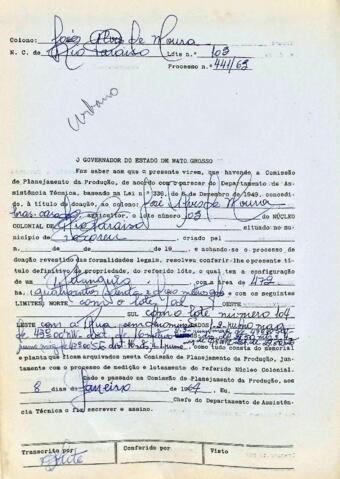 Colono: José Alves de Moura
N. C. de Rio Paraiso Lote n.º 103
Processo n.º 441/62
Urbano
O GOVERNADOR DO ESTADO DE MATO GROSSO
Faz saber aos que o presente virem, que havendo a Comissão
de Planejamento da Produção, de acordo com o parecer do Departamento de As-
sistência Técnica, baseado na Lei n.º 336, de 6 de Dezembro de 1949, concedi-
do, à título de doação, ao colono: José Alves de Moura
bras. casado, agricultor, o lote número 103 do NÚCLEO
COLONIAL DE Rio Paraiso situado no
município de criado pel
n. de de de 19 , e achando-se o processo de
doação revestido das formalidades legais, resolveu conferir-lhe o presente título
definitivo de propriedade, do referido lote, o qual tem a configuração de
um com a área de 472
ha. e com os seguintes
LIMITES, NORTE com o lote
SUL com o lote número 104
LESTE com a Rua
como tudo consta do memorial
e planta que ficam arquivados nesta Comissão de Planejamento da Produção, jun-
tamente com o processo de medição e loteamento do referido Núcleo Colonial.
Dado e passado na Comissão de Planejamento da Produção, aos
8 dias de Janeiro de 1964, Eu,
Chefe do Departamento de Assistên-
cia Técnica o fiz escrever e assino.
Transcrito por Conferido por Visto